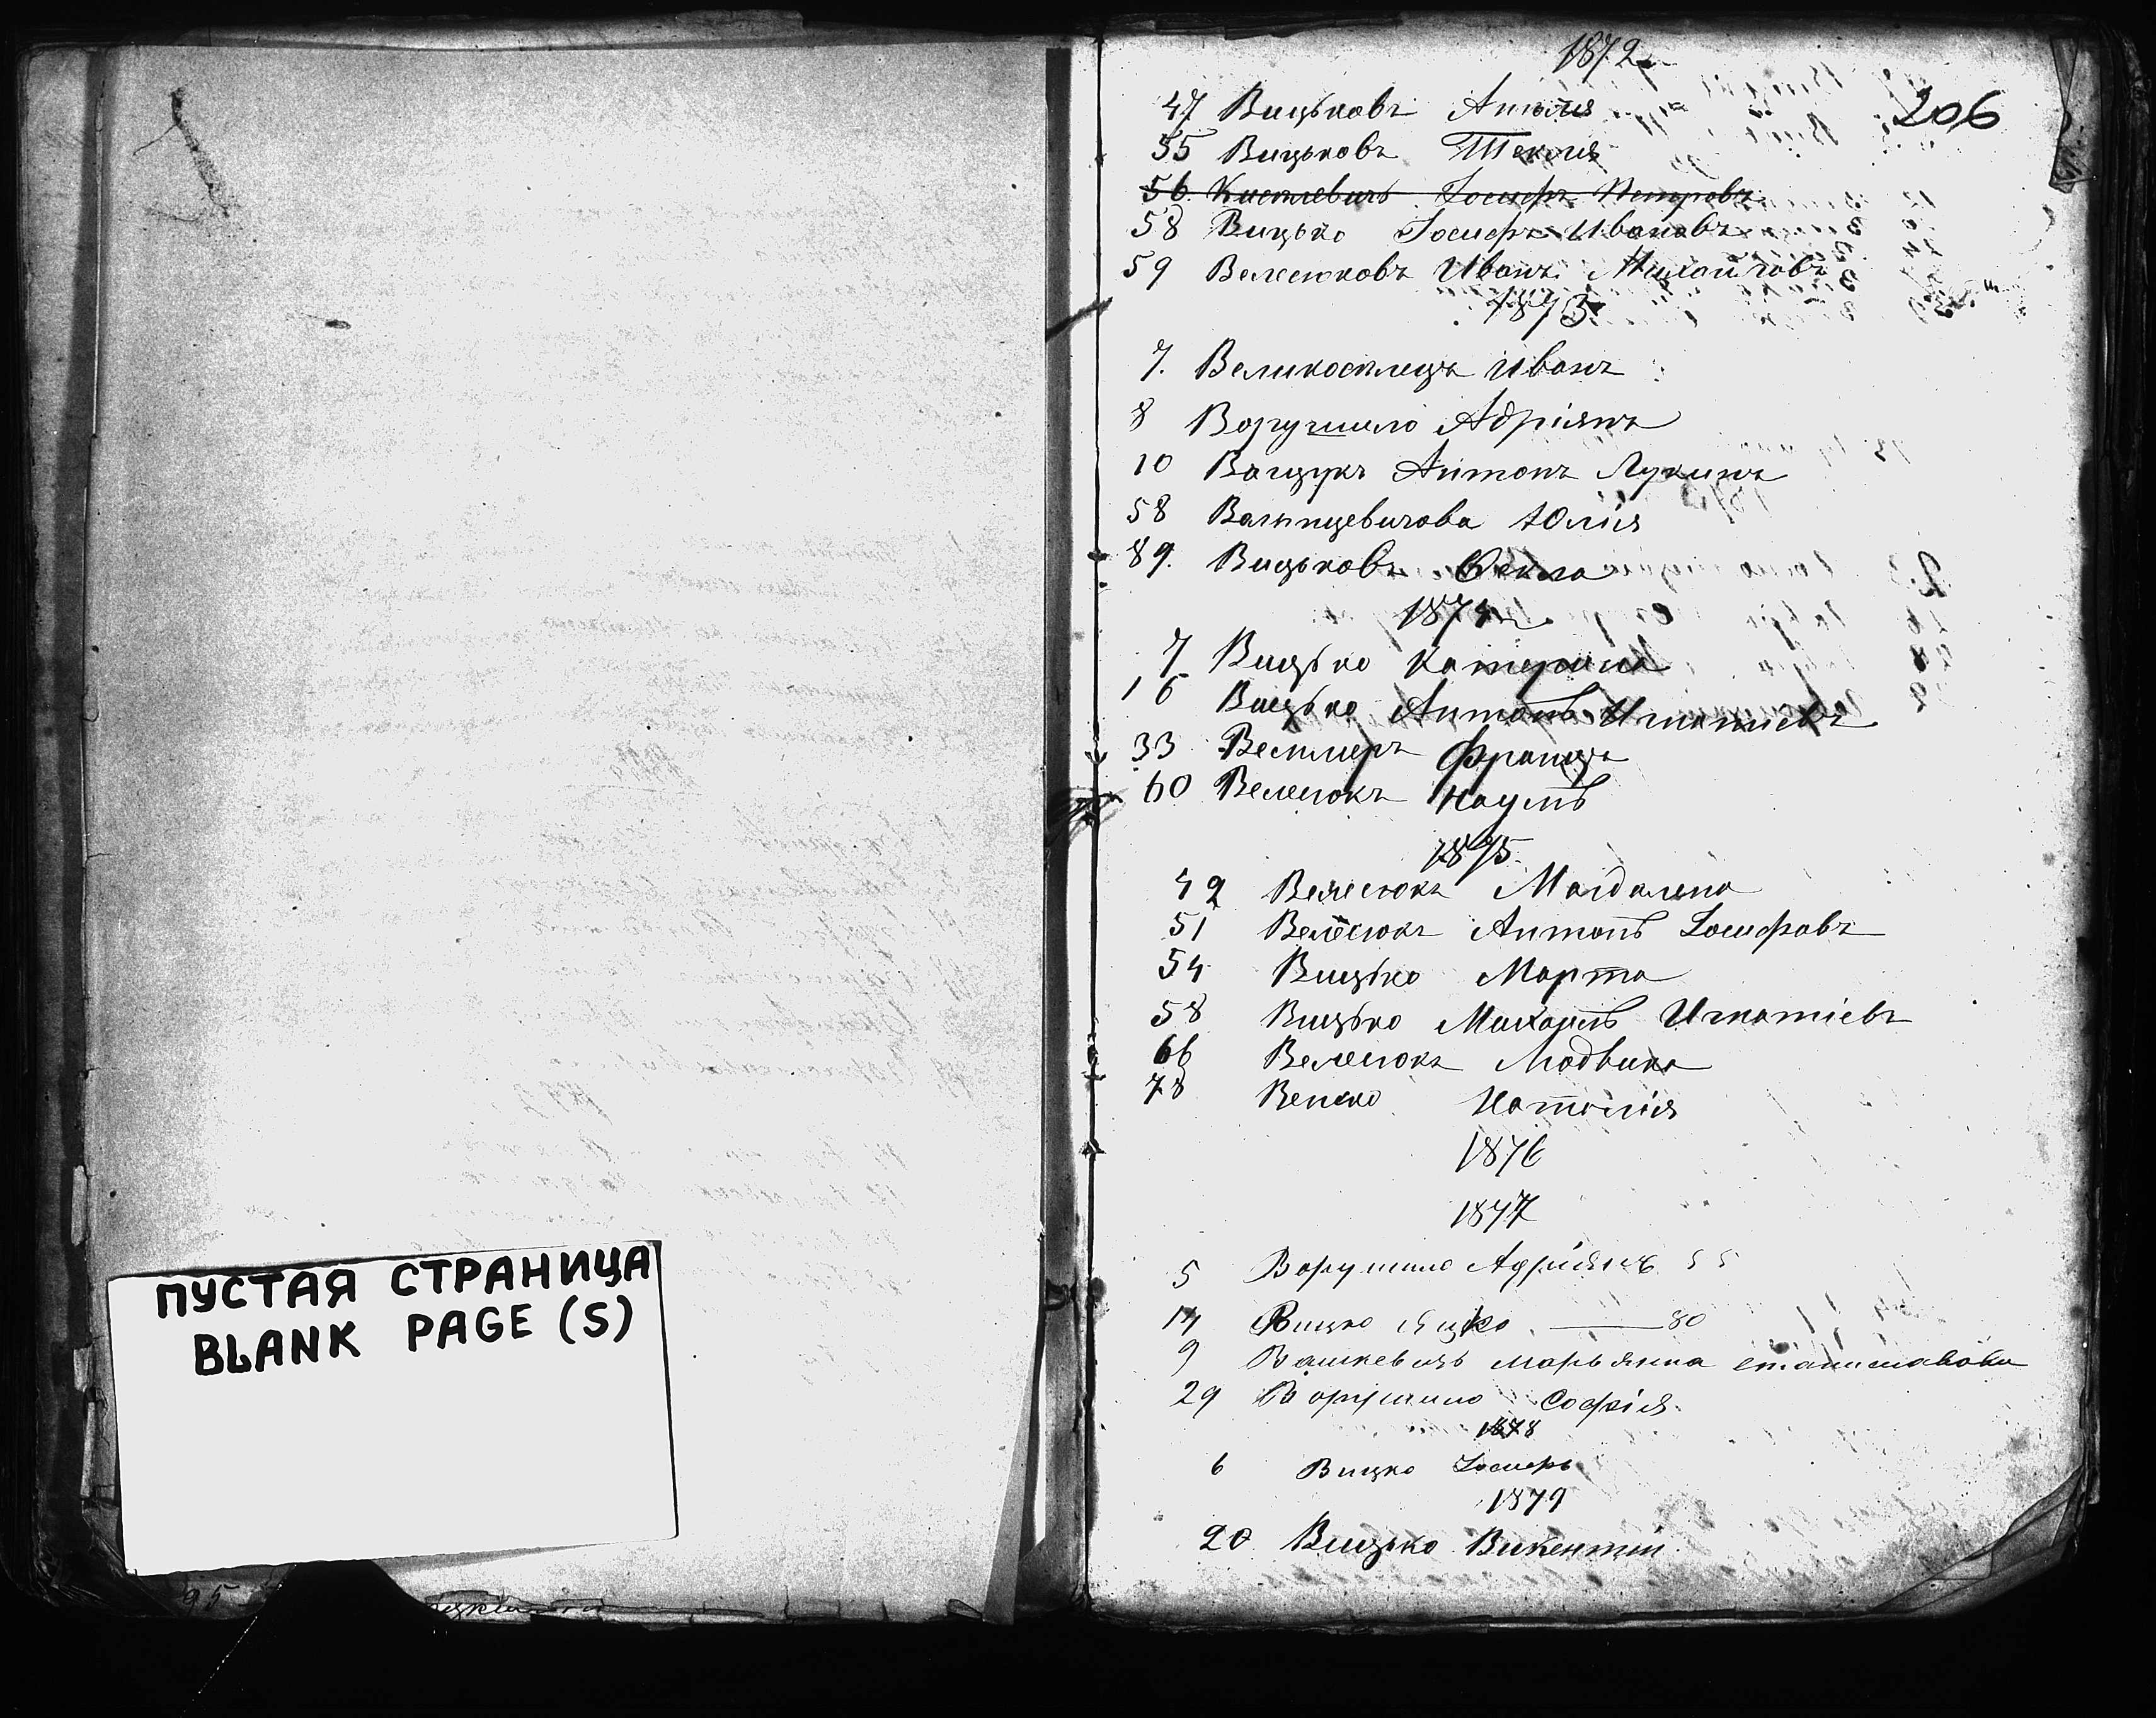 ПУСТАЯ СТРАНИЦА
BLANK PAGE (S)
1872
206
47 Вицьковъ Анъля
55 Вицьковъ Текля
56 Кистлевичъ Іосифъ Петровъ
58 Вицько Іосифъ Ивановъ
59 Велесюковъ Иванъ Михайловъ
1873
7. Великоселецъ Иванъ
8 Воручило Адріянъ
10 Ващукъ Антонъ Лукинъ
58 Валынцевичова Юлія
89. Вицьковъ Фекла
1874
7 Вицько Катерина
16 Вицько Антонъ Игнатіевъ
33 Вестмеръ Францъ
60 Велесюкъ Наумъ
1875
42 Велесюкъ Магдалена
51 Велесюкъ Антонъ Іосифовъ
54 Вицько Марта
58 Вицько Михаилъ Игнатіевъ
66 Велесюкъ Людвика
78 Венско Наталія
1876
1877
5 Воручило Адріянъ 55
14 Вицко Яцко — 80
9 Вашкевичъ марьянна станиславова
29 Воручило Софія
1878
6 Вицко Іосифъ
1879
20 Вицько Викентій